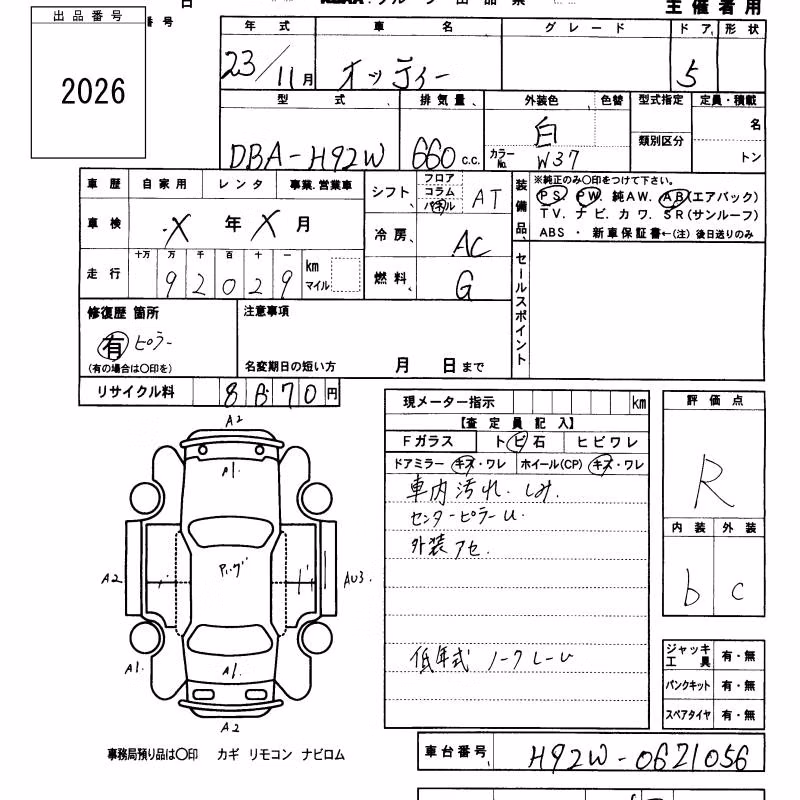 日
出品番号
2026
主催者用
年式
車名
グレード
ドア
形状
23/11月
オッティー
5
型式
排気量
外装色
色替
型式指定
定員・積載
名
DBA-H92W
660 c.c.
白
カラーNo.
W37
類別区分
トン
車歴
自家用
レンタ
事業.営業車
シフト
フロア
コラム
パネル
AT
装備品
※純正のみ〇印をつけて下さい。
PS. PW. 純AW. AB(エアバック)
TV. ナビ. カワ. SR(サンルーフ)
ABS ・ 新車保証書←(注) 後日送りのみ
車検
X年X月
冷房
AC
走行
十万 万 千 百 十 一
92029
km
マイル
燃料
G
セールスポイント
修復歴 箇所
有 ピラー
(有の場合は〇印を)
注意事項
名変期日の短い方
月
日まで
リサイクル料
8670円
現メーター指示
km
【査定員記入】
Fガラス
トビ石
ヒビワレ
ドアミラー
キズ・ワレ
ホイール(CP)
キズ・ワレ
車内汚れ.しみ.
センターピラーU.
外装アセ.
低年式 ノークレーム
評価点
R
内装
外装
b
c
A2
A1.
A2
AU3.
A1.
A1.
A2
ジャッキ
工具
有・無
パンクキット
有・無
スペアタイヤ
有・無
事務局預り品は〇印 カギ リモコン ナビロム
車台番号
H92W-0621056